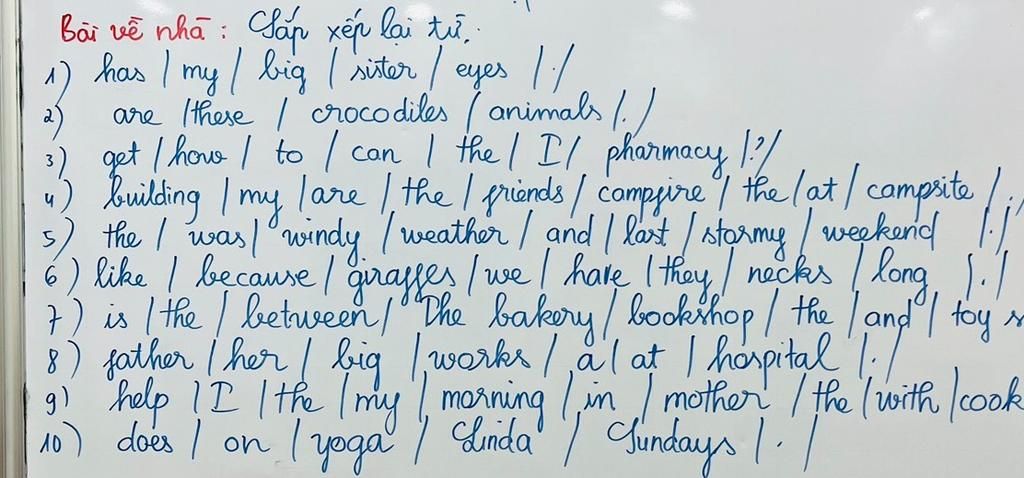 Bài về nhà : Sắp xếp lại từ.
1) has / my / big / sister / eyes / . /
2) are / these / crocodiles / animals / . /
3) get / how / to / can / the / I / pharmacy / ? /
4) building / my / are / the / friends / campfire / the / at / campsite / . /
5) the / was / windy / weather / and / last / stormy / weekend / . /
6) like / because / giraffes / we / have / they / necks / long / . /
7) is / the / between / The bakery / bookshop / the / and / toy
8) father / her / big / works / a / at / hospital / . /
9) help / I / the / my / morning / in / mother / the / with / cook
10) does / on / yoga / Linda / Sundays / . /